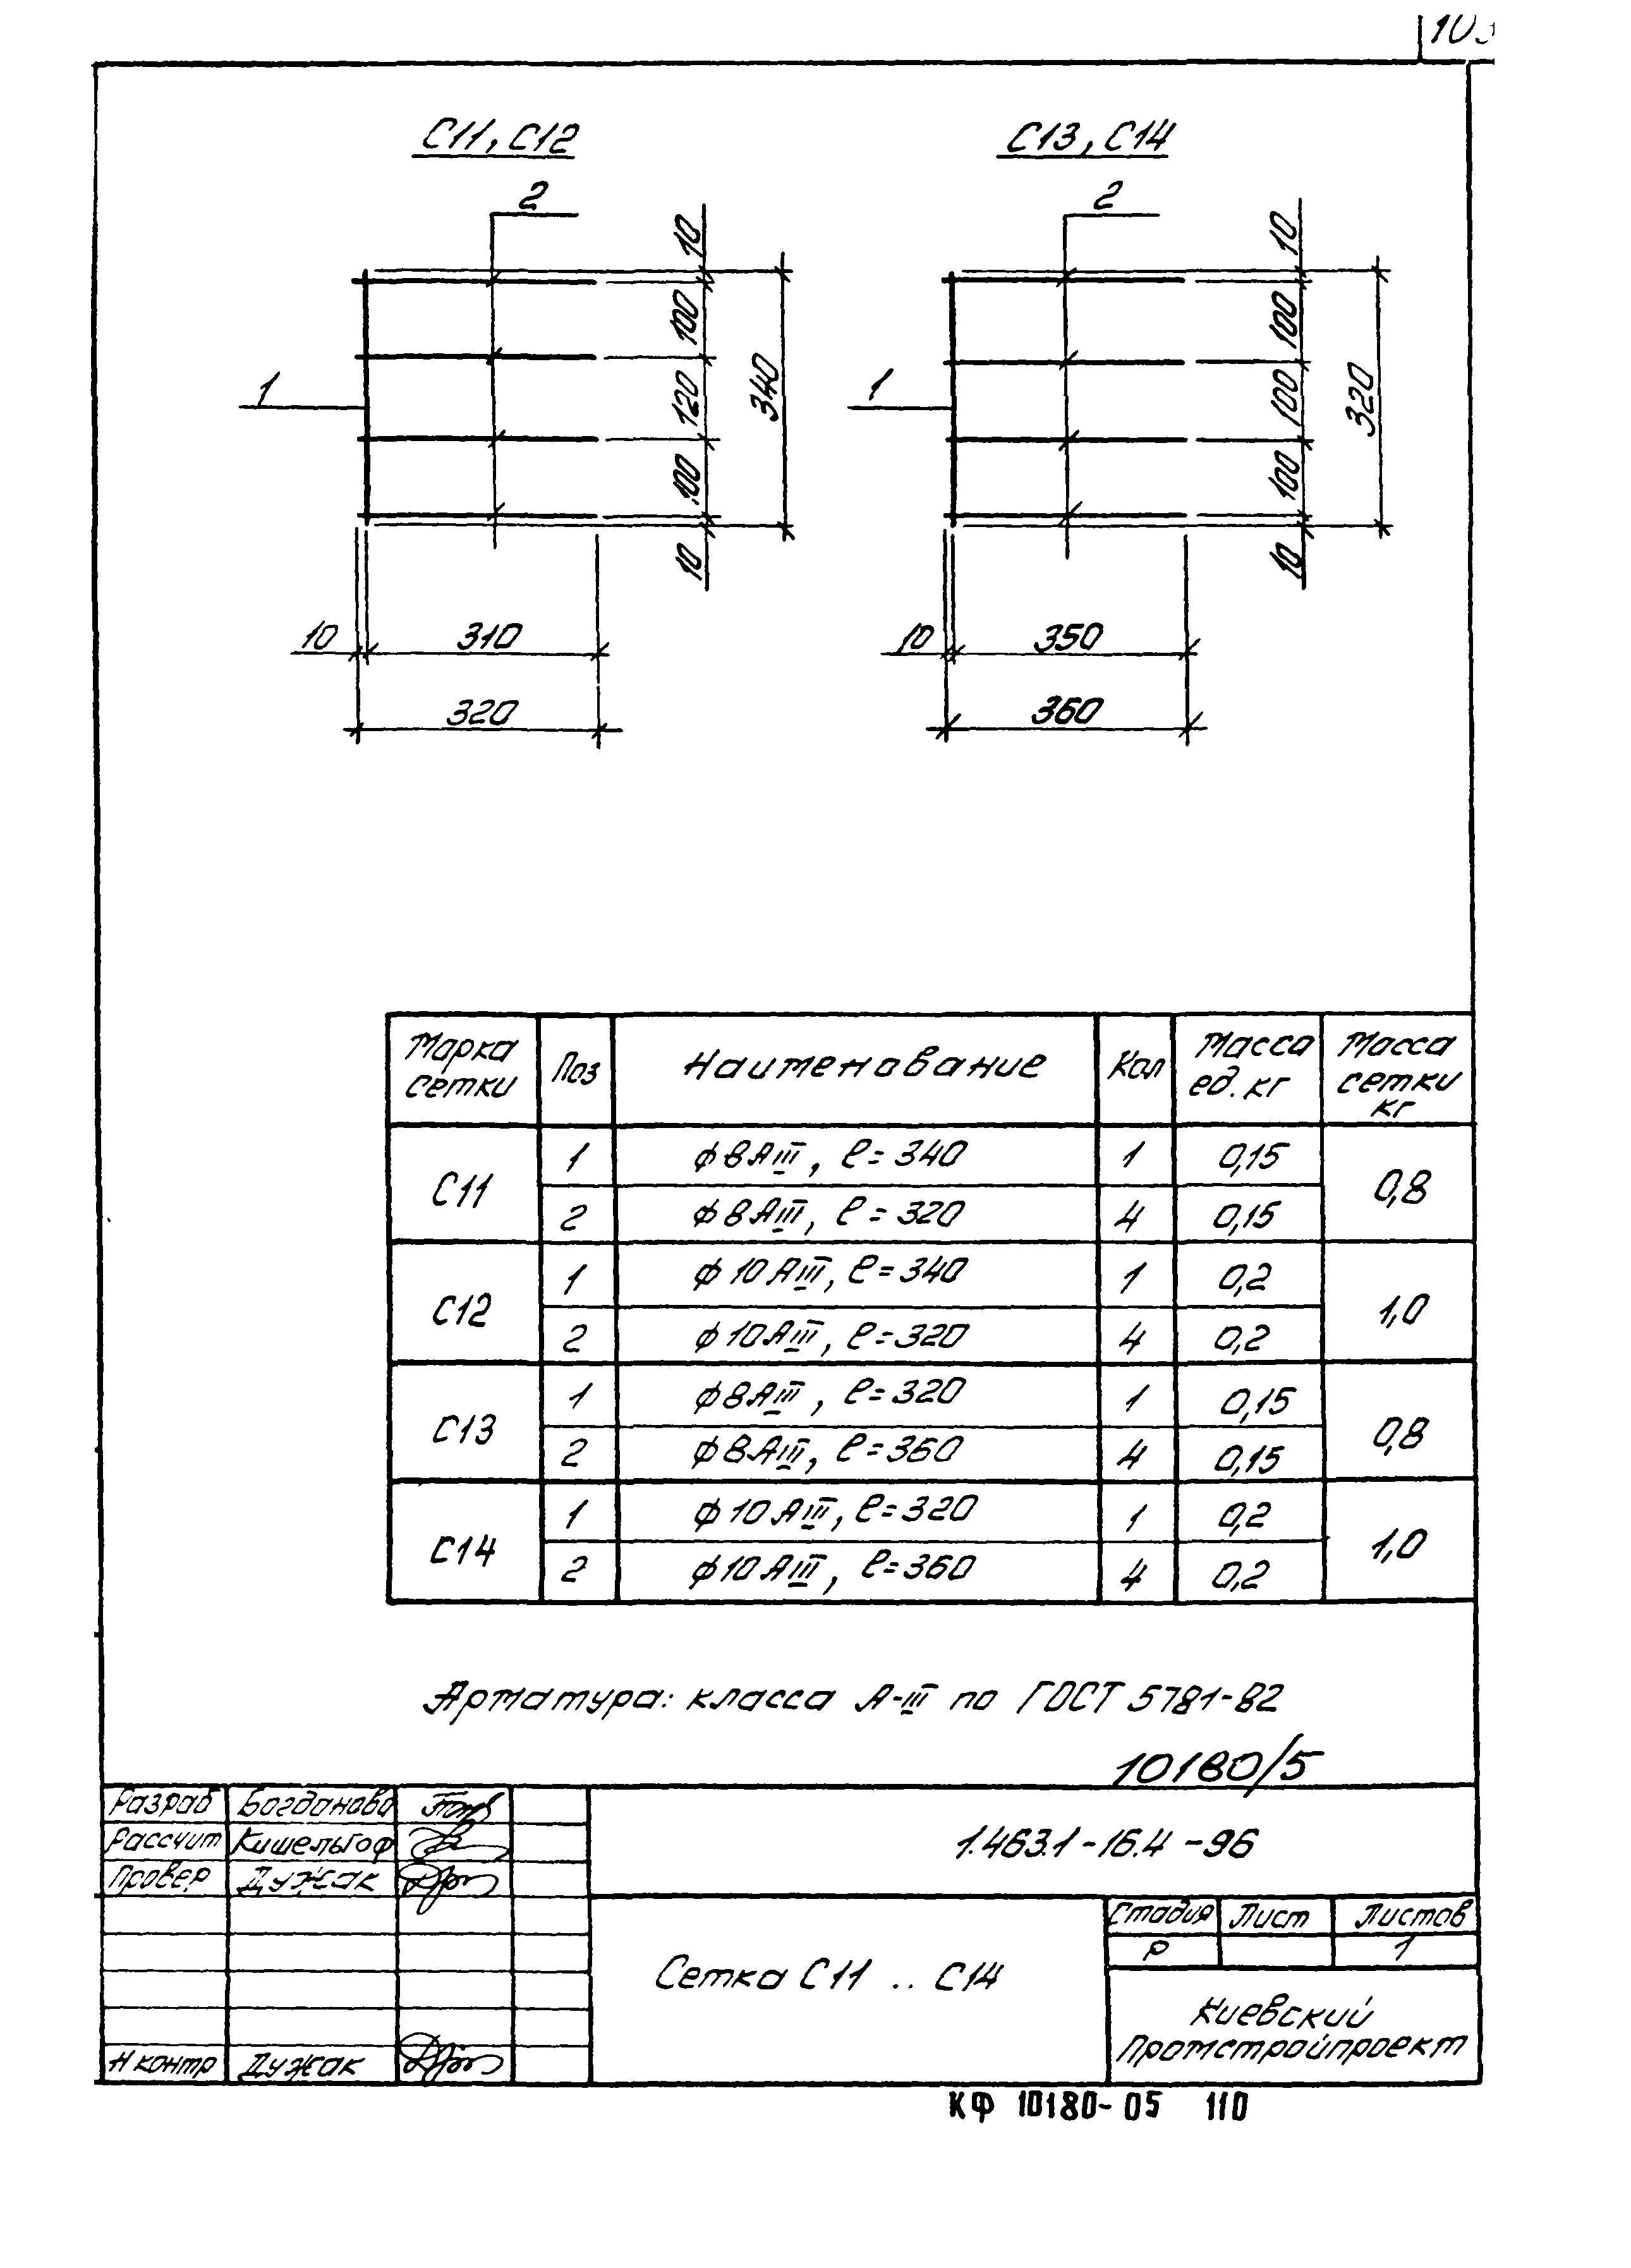 С11, С12
С13, С14
2
2
10
100
120
100
10
340
10
100
100
100
10
320
1
1
10
310
320
10
350
360
Марка сетки
Поз
Наименование
Кол
Масса ед. кг
Масса сетки кг
С11
1
ф 8 АIII, ℓ= 340
1
0,15
0,8
2
ф 8 АIII, ℓ= 320
4
0,15
С12
1
ф 10 АIII, ℓ= 340
1
0,2
1,0
2
ф 10 АIII, ℓ= 320
4
0,2
С13
1
ф 8 АIII, ℓ= 320
1
0,15
0,8
2
ф 8 АIII, ℓ= 360
4
0,15
С14
1
ф 10 АIII, ℓ= 320
1
0,2
1,0
2
ф 10 АIII, ℓ= 360
4
0,2
Арматура: класса А-III по ГОСТ 5781-82
10180/5
Разраб Богданова
Рассчит Кишельгоф
Провер Дужак
Н контр Дужак
1.463.1-16.4-96
Сетка С11 .. С14
Стадия Лист Листов
Р 1
Киевский
Промстройпроект
КФ 10180-05 110